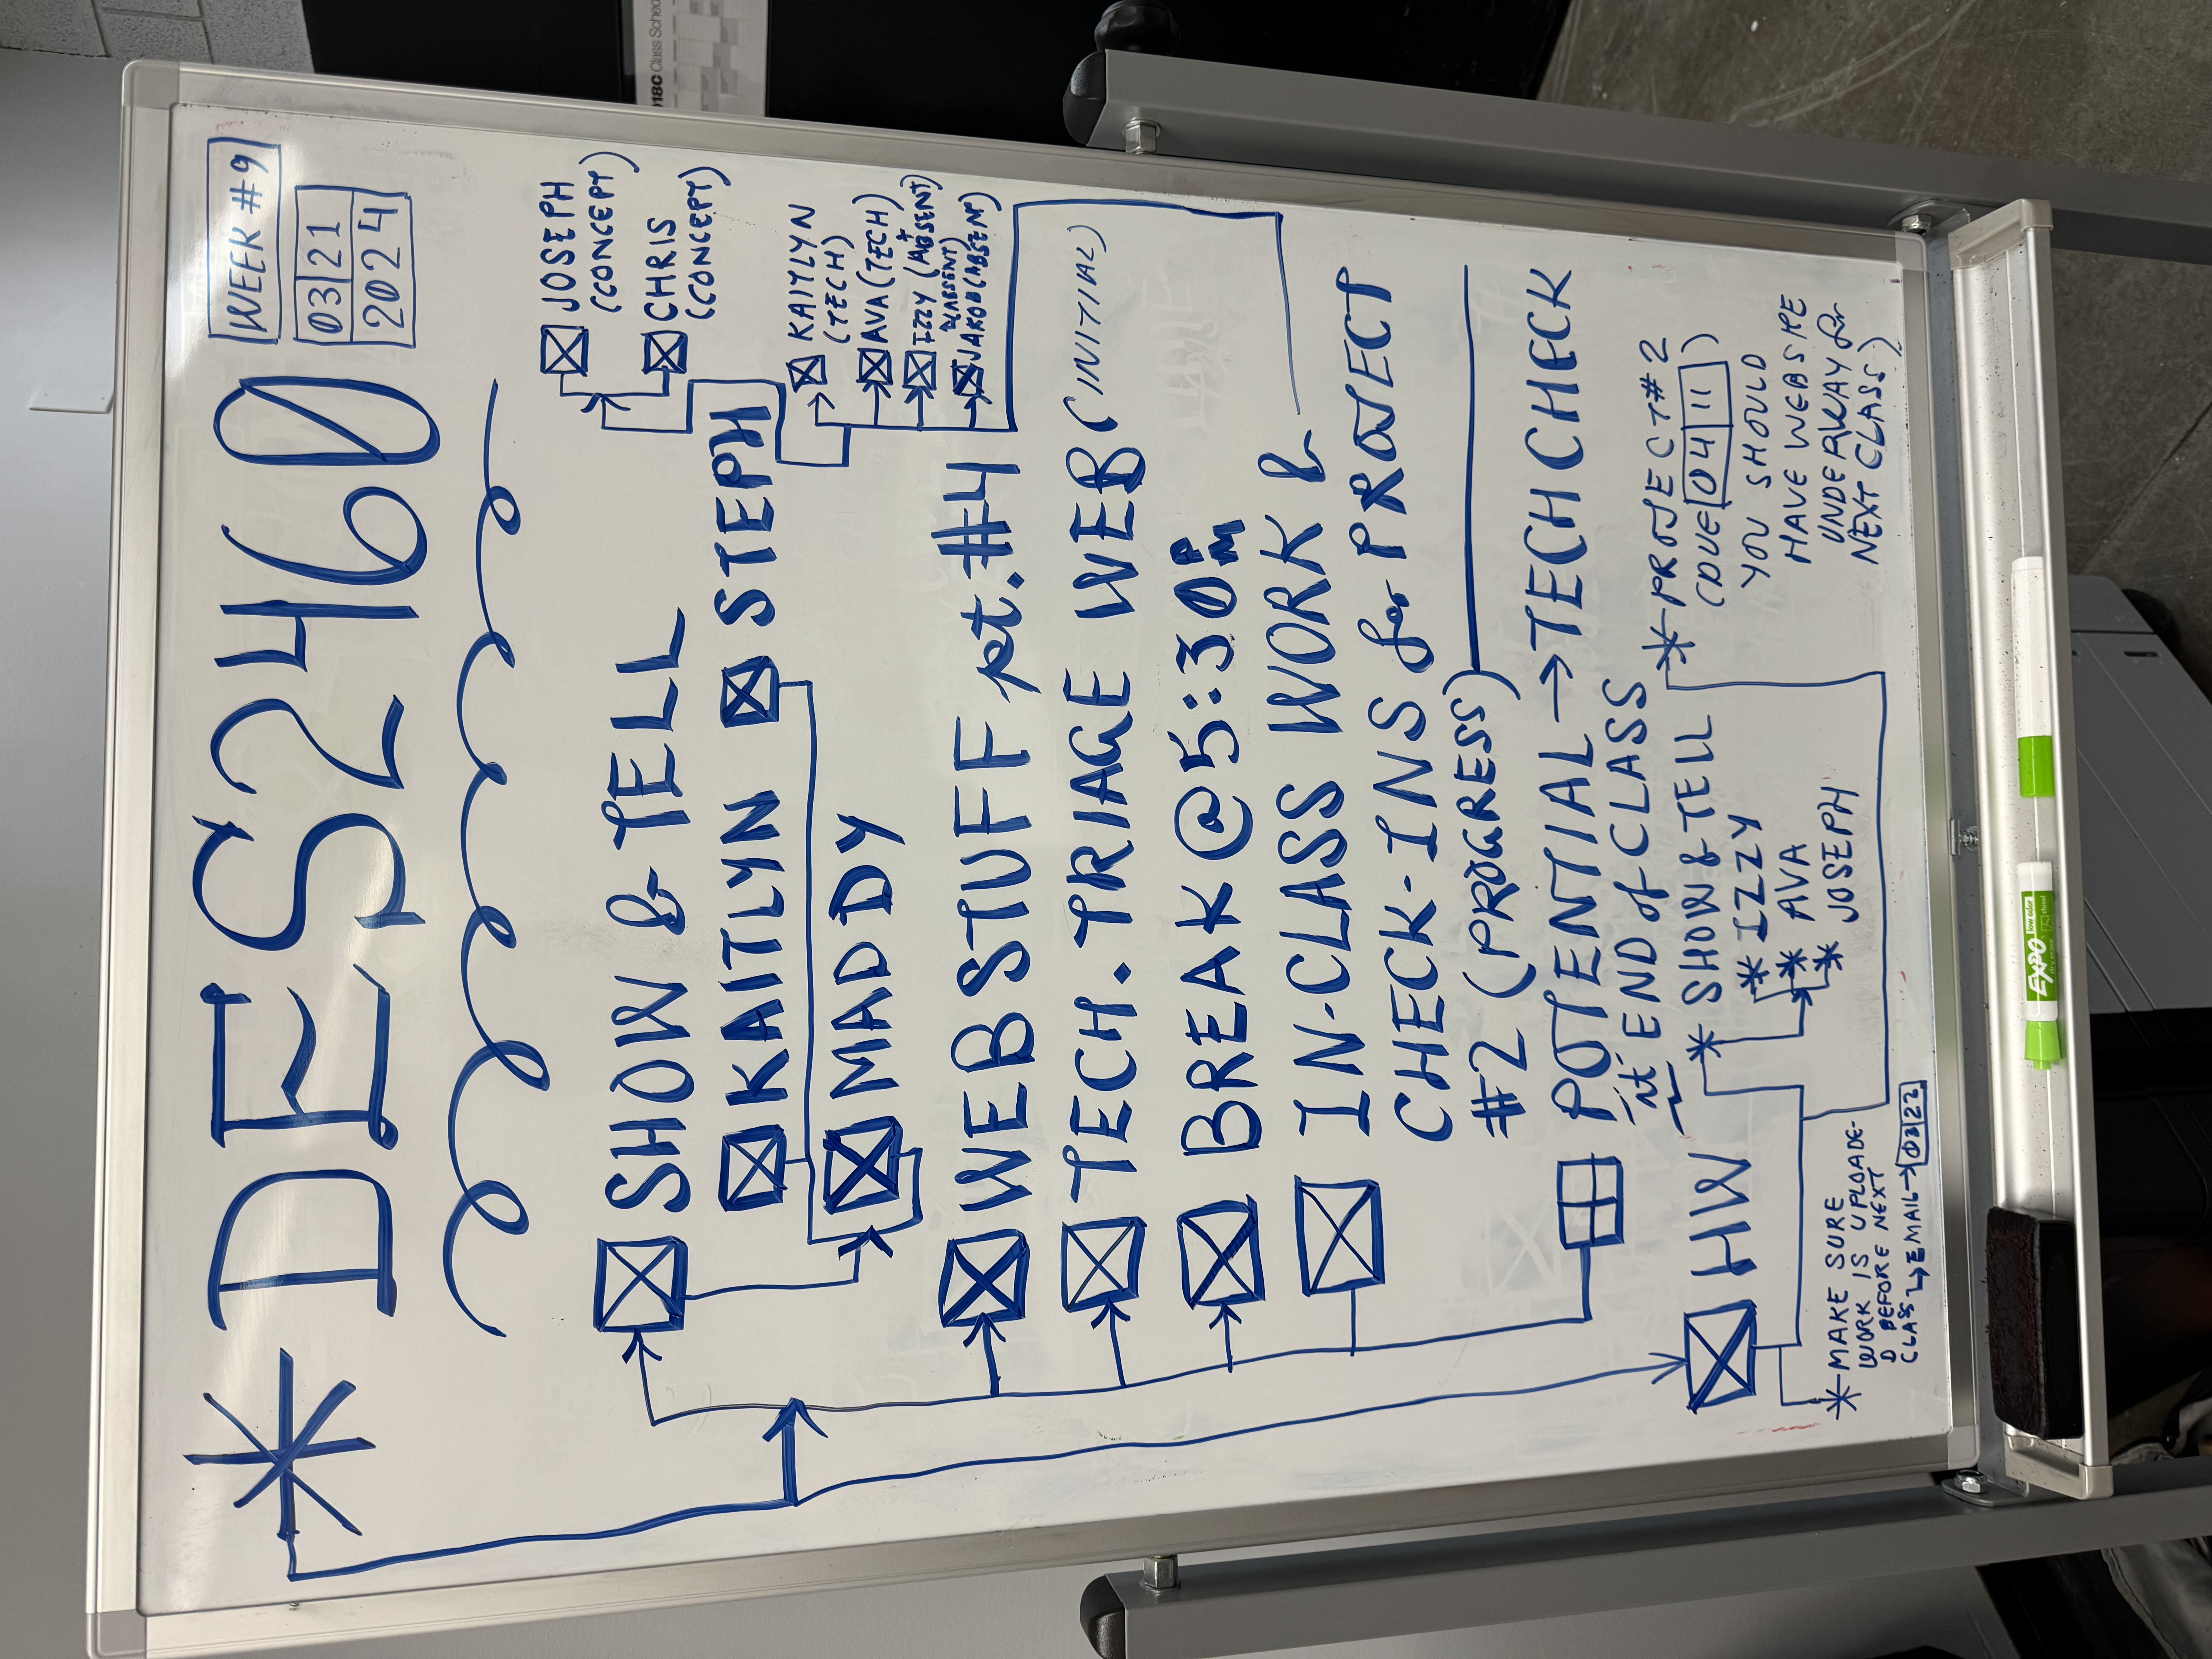 * DES2460
WEEK #9
03 21
2024
SHOW & TELL
KAITLYN
STEPH
MADDY
JOSEPH
(CONCEPT)
CHRIS
(CONCEPT)
KAITLYN
(TECH)
AVA (TECH)
IZZY (ABSENT)
(ABSENT)
JAKOB (ABSENT)
WEB STUFF pt. #4
TECH. TRIAGE WEB (INITIAL)
BREAK @ 5:30 PM
IN-CLASS WORK &
CHECK-INS for PROJECT
#2 (PROGRESS)
POTENTIAL → TECH CHECK
at END of CLASS
HW
* SHOW & TELL
* IZZY
* AVA
* JOSEPH
* PROJECT #2
(DUE 04 11)
YOU SHOULD
HAVE WEBSITE
UNDERWAY for
NEXT CLASS)
* MAKE SURE
WORK IS UPLOADE-
D BEFORE NEXT
CLASS → EMAIL → 03 22
EXPO
low odor
018C Class Sched